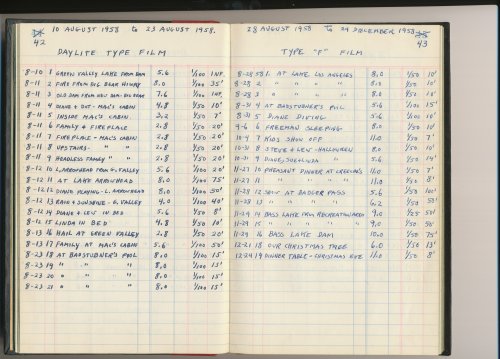 42
10 AUGUST 1958 to 23 AUGUST 1958.
DAYLITE TYPE FILM
8-10 1 GREEN VALLEY LAKE FROM DAM 5.6 1/100 INF
8-10 2 FIRE FROM BIG BEAR HIWAY 8.0 1/100 35'
8-11 3 OLD DAM FROM NEW DAM-BIG BEAR 7.6 1/100 INF.
8-11 4 DIANE & DOT - MAC'S CABIN 4.8 1/50 10'
8-11 5 INSIDE MAC'S CABIN 3.2 1/50 7'
8-11 6 FAMILY & FIREPLACE 2.8 1/50 20'
8-11 7 FIREPLACE - MAC'S CABIN 2.8 1/50 20'
8-11 8 UPSTAIRS- " " 2.8 1/50 20'
8-11 9 HEADLESS FAMILY " " 2.8 1/50 20'
8-12 10 L. ARROWHEAD FROM VILLAGE 5.6 1/100 75'
8-12 11 AT LAKE ARROWHEAD 8.0 1/100 20'
8-12 12 DIANE PLAYING - L. ARROWHEAD 8.0 1/100 50'
8-12 13 RAIN & SUNSHINE - G. VALLEY 4.0 1/100 40'
8-12 14 DIANE & LEN IN BED 5.6 1/50 8'
8-12 15 LINDA IN BED 4.8 1/50 10'
8-13 16 HAIL AT GREEN VALLEY 2.8 1/50 20'
8-13 17 FAMILY AT MAC'S CABIN 5.6 1/100 50'
8-23 18 AT BADSTUBNER'S POOL 8.0 1/100 15'
8-23 19 " " " 8.0 1/100 15'
8-23 20 " " " 8.0 1/100 15'
8-23 21 " " " 8.0 1/100 15'
28 AUGUST 1958 to 24 DECEMBER 1958
43
TYPE "F" FILM
8-28 58 1. AT LAKE LOS ANGELES 8.0 1/50 10'
8-28 2 " " " " 8.0 1/50 10'
8-28 3 " " " " 8.0 1/50 10'
8-31 4 AT BADSTUBNER'S POOL 5.6 1/100 15'
8-31 5 DIANE DIVING 5.6 1/100
9-6 6 FREEMAN SLEEPING 8.0 1/50 10'
10-4 7 KIDS SHOW OFF 11.0 1/50 7'
10-31 8 STEVE & LEN - HALLOWEEN 8.0 1/50 10'
10-31 9 5.6 1/50 14'
11-27 10 PHEASANT DINNER AT 11.0 1/50 7'
11-27 11 " " " " 11.0 1/50 8'
11-28 12 SNOW AT BADGER PASS 5.6 1/50 100'
11-28 13 " " " " 6.2 1/50 50'
11-29 14 BASS LAKE FROM RECREATION AREA 9.0 1/25 50'
11-29 15 " " " " " 9.0 1/50 50'
11-29 16 BASS LAKE DAM 10.0 1/50 75'
12-21 18 OUR CHRISTMAS TREE 6.0 1/50 13'
12-24 19 DINNER TABLE - CHRISTMAS EVE 11.0 1/50 8'